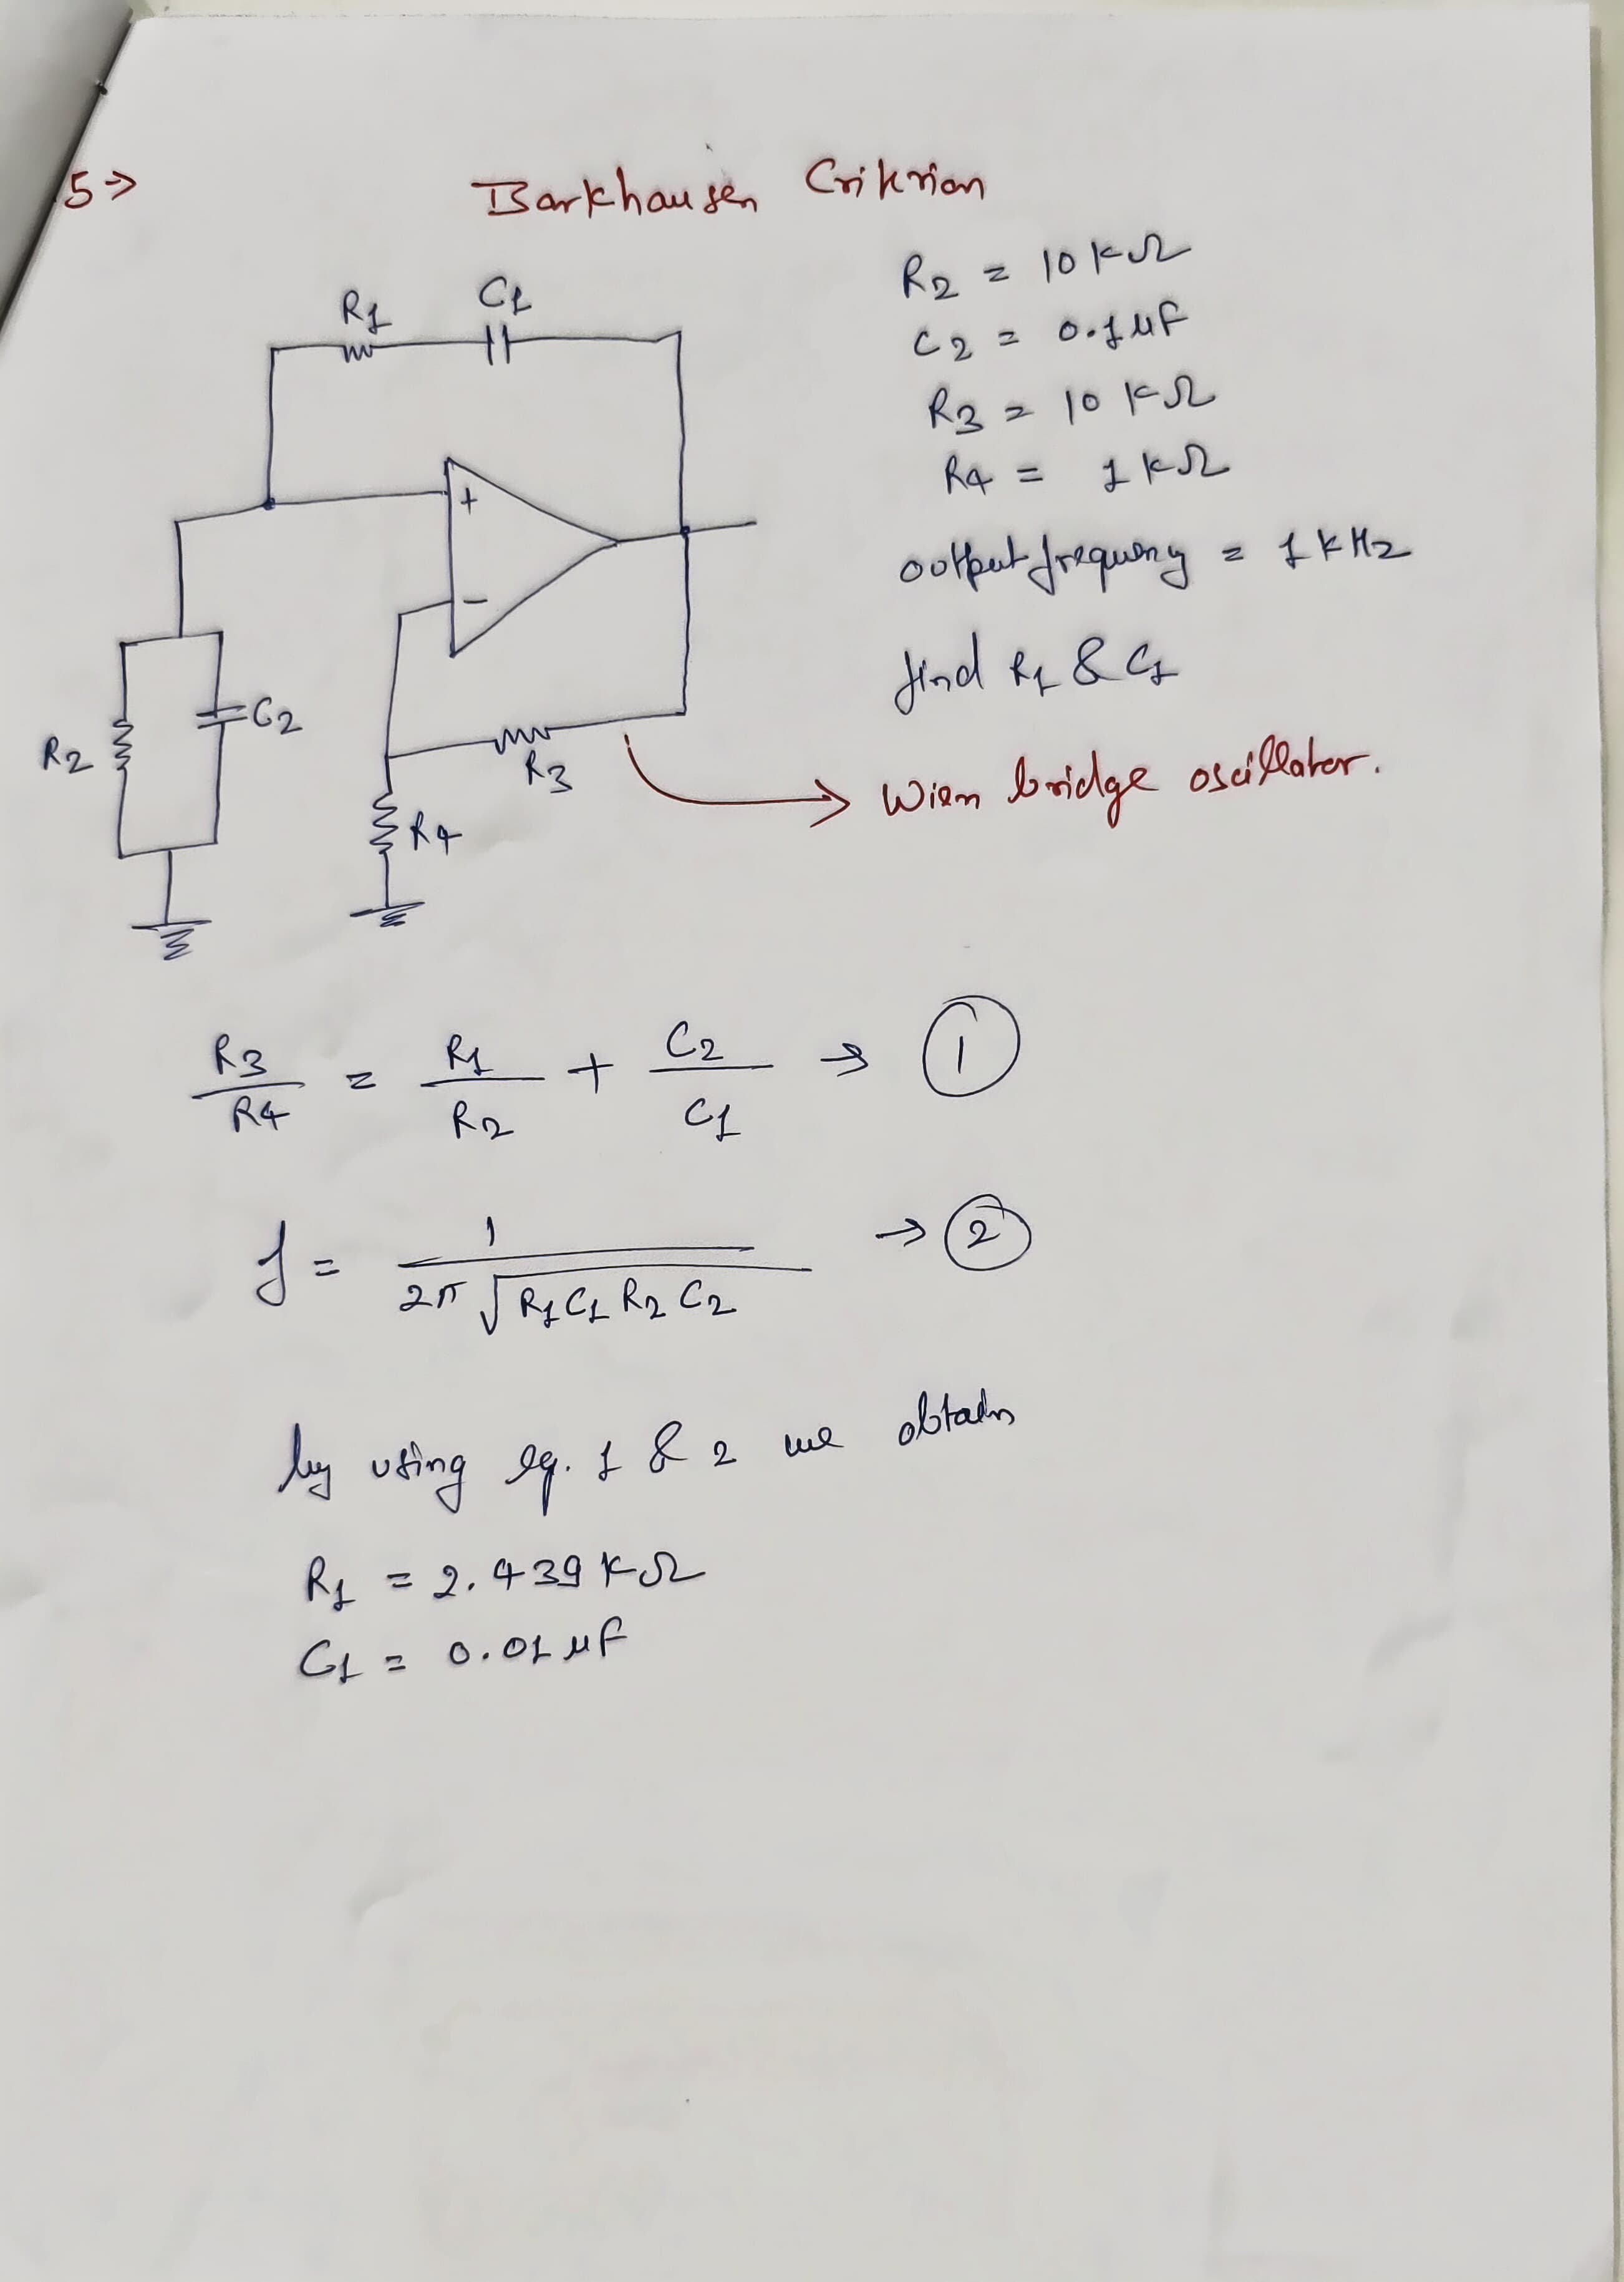 5→ Barkhausen Criterion
R2 = 10 kΩ
C2 = 0.1 μF
R3 = 10 kΩ
R4 = 1 kΩ
output frequency = 1 kHz
find R1 & C1
→ Wien bridge oscillator.
R1 C1
+
-
R2 C2
R3
R4
R3/R4 = R1/R2 + C2/C1 → 1
f = 1/(2π √(R1 C1 R2 C2)) → 2
by using eq. 1 & 2 we obtain
R1 = 2.439 kΩ
C1 = 0.01 μF